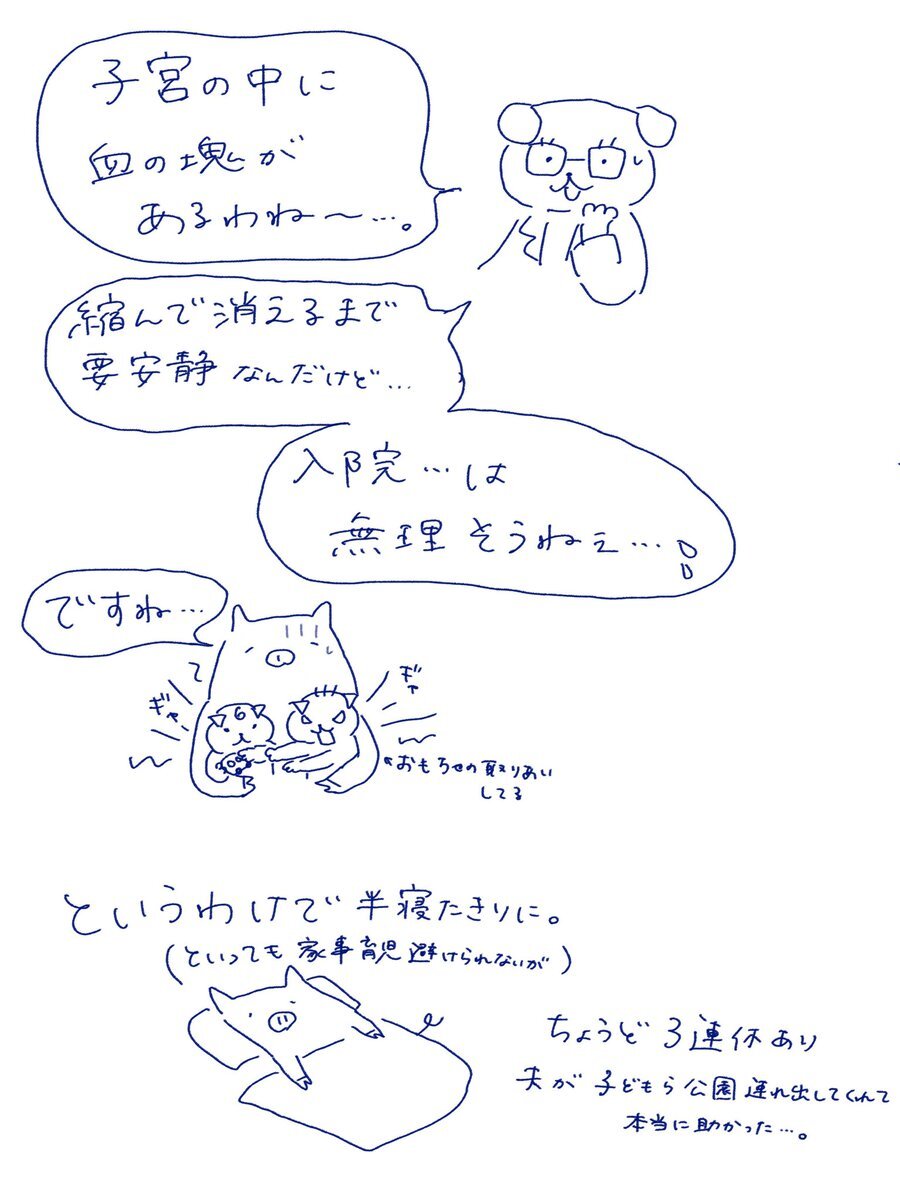 子宮の中に
血の塊が
あるわね〜…。
縮んで消えるまで
要安静なんだけど…
入院…は
無理そうねぇ…
ですね…
ギャー
ギャー
おもちゃの取りあい
してる
というわけで半寝たきりに。
(といっても家事育児避けられないが)
ちょうど3連休あり
夫が子どもら公園連れ出してくれて
本当に助かった…。